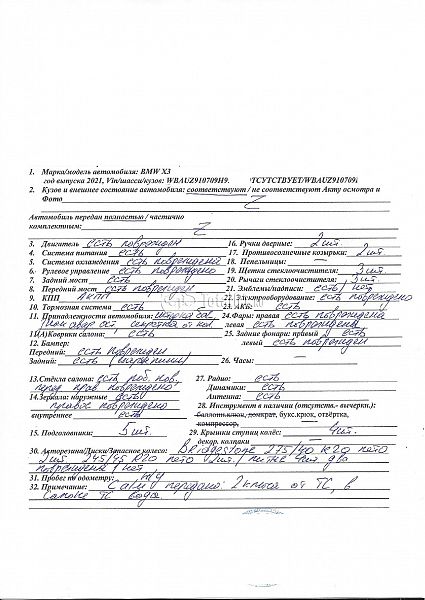 1. Марка/модель автомобиля: BMW X3
год выпуска 2021, Vin/шасси/кузов: WBAUZ910709H9. ТСУТСТВУЕТ/WBAUZ910709
2. Кузов и внешнее состояние автомобиля: соответствуют / не соответствуют Акту осмотра и
Фото Z
Автомобиль передан полностью / частично
комплектным: Z
3. Двигатель есть поврежден
4. Система питания есть
5. Система охлаждения есть повреждена
6. Рулевое управление есть повреждено
7. Задний мост есть
8. Передний мост есть поврежден
9. КПП АКПП
10. Тормозная система есть
11. Принадлежности автомобиля:
11(А)Коврики салона: есть
12. Бампер:
Передний: есть поврежден
Задний: есть
13.Стёкла салона: есть
перед прав повреждено
14.Зеркала: наружные есть
правое повреждено
внутреннее есть
15. Подголовники: 5 шт.
16. Ручки дверные: 2 шт.
17. Противосолнечные козырьки: 2 шт.
18. Пепельницы: —
19. Щетки стеклоочистителя: 3 шт.
20. Рычаги стеклоочистителя: 3 шт.
21. Эмблемы/надписи: есть/нет
22. Электрооборудование: есть повреждено
23. АКБ: есть
24.Фары: правая есть повреждена
левая есть повреждена
25. Задние фонари: правый есть
левый есть поврежден
26. Часы: —
27. Радио: есть
Динамики: есть
Антенна: есть
28. Инструмент в наличии (отсутств.- вычерки.):
баллон.ключ, домкрат, букс.крюк, отвёртка,
компрессор,
29. Крышки ступиц колёс: 4 шт.
декор. колпаки —
30. Авторезина/Диски/Запасное колесо: Bridgestone 275/40 R20 лето
2шт. 245/45 R20 лето 2шт./ литые 4шт два
повреждены / нет
31. Пробег по одометру: н/у
32. Примечание: передано: 2 ключа от ТС, в
салоне ТС вода.
Z